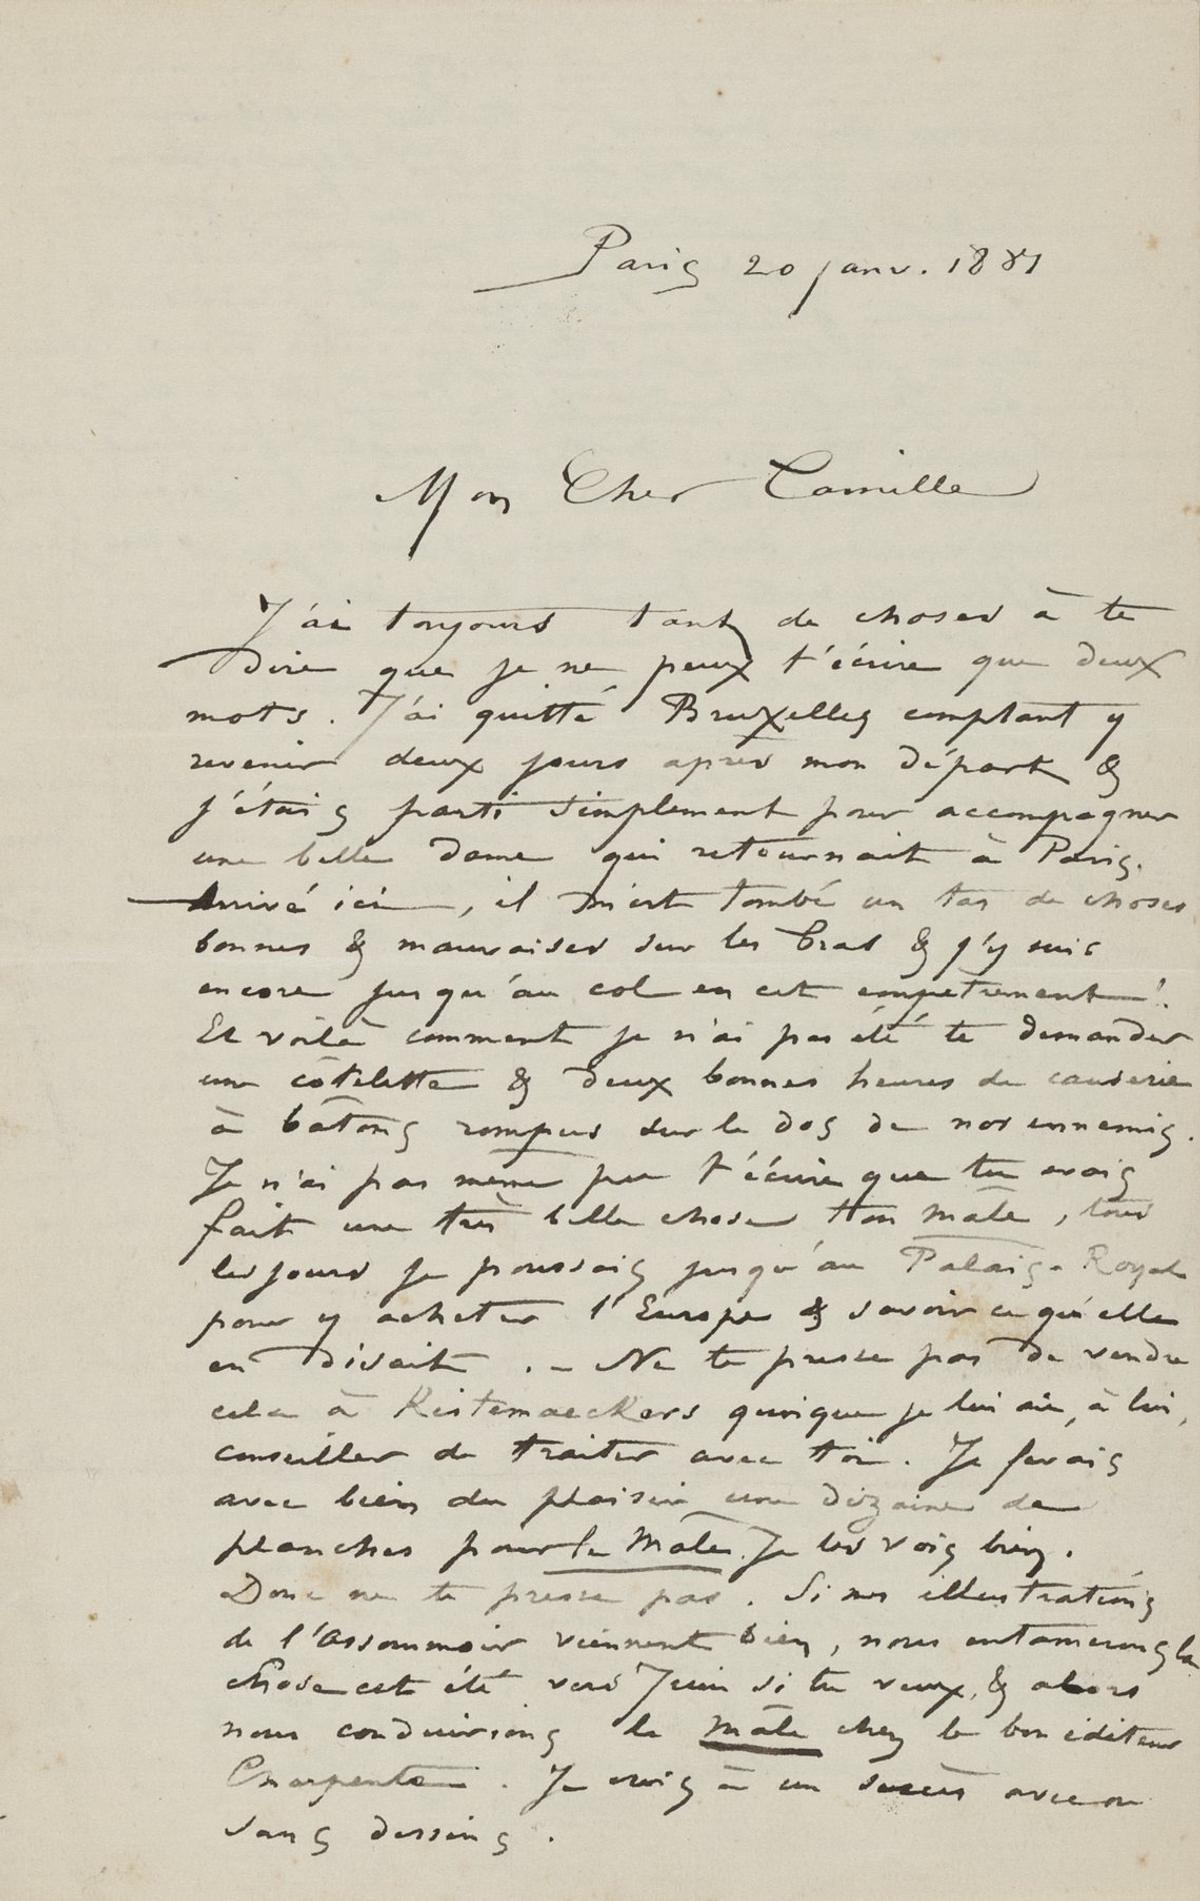 Paris 20 janv. 1881
Mon Cher Camille
J'ai toujours tant de choses à te
dire que je ne peux t'écrire que deux
mots. J'ai quitté Bruxelles comptant y
revenir deux jours après mon départ &
j'étais parti simplement pour accompagner
une belle dame qui retournait à Paris.
Arrivé ici, il m'est tombé un tas de choses
bonnes & mauvaises sur les bras & j'y suis
encore jusqu'au col en cet empetrement!
Et voilà comment je n'ai pas été te demander
une côtelette & deux bonnes heures de causerie
à bâtons rompus sur le dos de nos ennemis.
Je n'ai pas même pu t'écrire que tu avais
fait une très belle chose ton mâle, tous
les jours je poussais jusqu'au Palais-Royal
pour y acheter l'Europe & savoir ce qu'elle
en disait. – Ne te presse pas de vendre
cela à Kistemaeckers quoique je lui aie, à lui,
conseiller de traiter avec toi. Je ferais
avec bien du plaisir une dizaine de
planches pour le Mâle. Je les vois bien.
Donc ne te presse pas. Si nos illustrations
de l'Assommoir viennent bien, nous entamerons la
chose cet été vers Juin si tu veux, & alors
nous conduirions le Mâle chez le bon éditeur
Charpentier. Je crois à un succès avec ou
sans dessins.